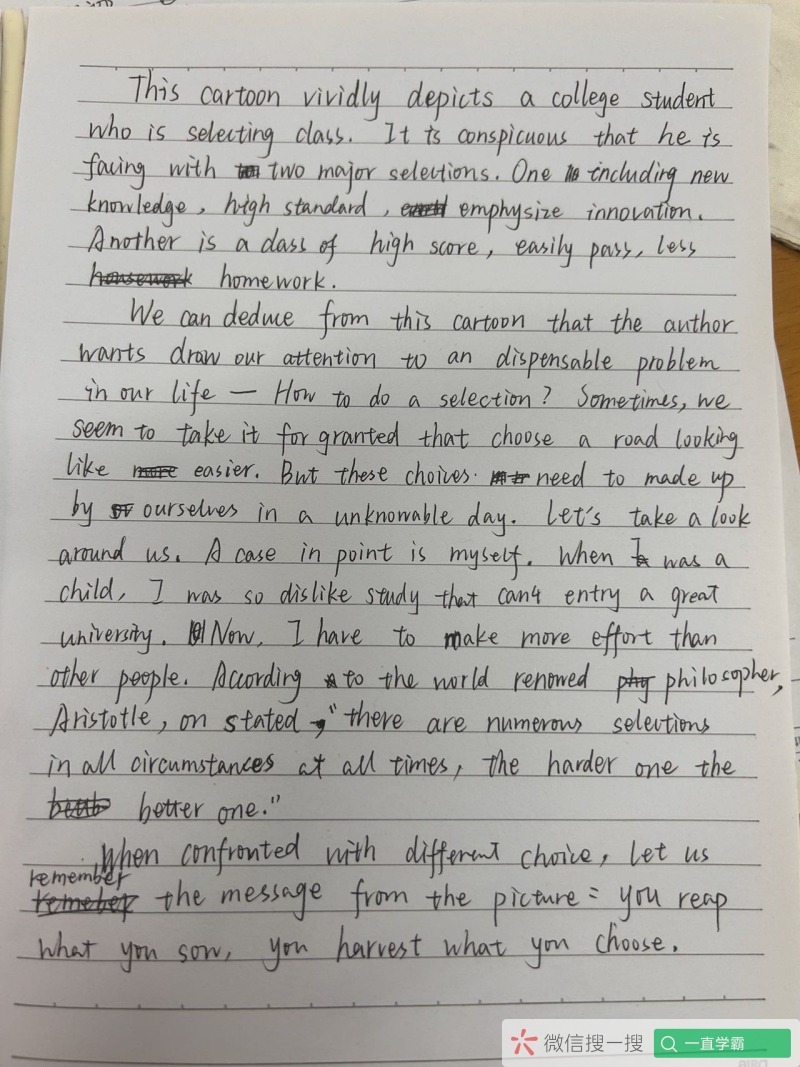 This cartoon vividly depicts a college student
who is selecting class. It is conspicuous that he is
facing with two major selections. One including new
knowledge, high standard, emphysize innovation.
Another is a class of high score, easily pass, less
homework.
We can deduce from this cartoon that the author
wants draw our attention to an dispensable problem
in our life — How to do a selection? Sometimes, we
seem to take it for granted that choose a road looking
like easier. But these choices need to made up
by ourselves in a unknowable day. Let's take a look
around us. A case in point is myself. When I was a
child, I was so dislike study that can't entry a great
university. Now, I have to make more effort than
other people. According to the world renowed philosopher,
Aristotle, on stated, "there are numerous selections
in all circumstances at all times, the harder one the
better one."
When confronted with different choice, let us
remember
the message from the picture: you reap
what you sow, you harvest what you choose.
微信搜一搜
一直学霸